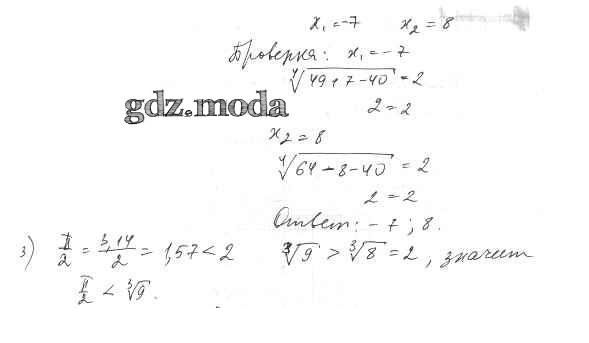 x₁ = -7 x₂ = 8
Проверка: x₁ = -7
⁴√(49+7-40) = 2
2 = 2
gdz.moda
x₂ = 8
⁴√(64-8-40) = 2
2 = 2
Ответ: -7; 8.
3) π/2 = 3,14/2 = 1,57 < 2 ³√9 > ³√8 = 2, значит
π/2 < ³√9.